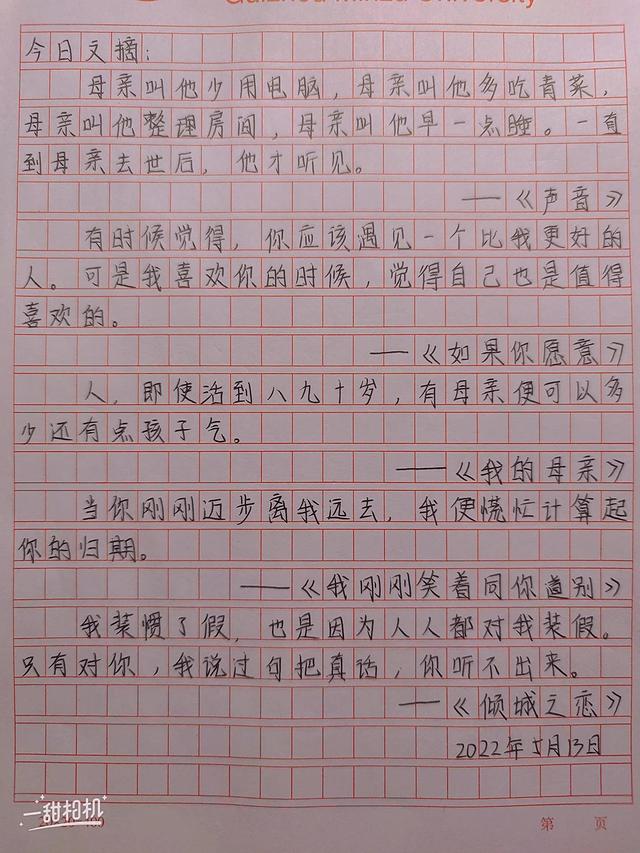 Guizhou Minzu University
今日文摘：
母亲叫他少用电脑，母亲叫他多吃青菜，
母亲叫他整理房间，母亲叫他早一点睡。一直
到母亲去世后，他才听见。
——《声音》
有时候觉得，你应该遇见一个比我更好的
人。可是我喜欢你的时候，觉得自己也是值得
喜欢的。
——《如果你愿意》
人，即使活到八九十岁，有母亲便可以多
少还有点孩子气。
——《我的母亲》
当你刚刚迈步离我远去，我便慌忙计算起
你的归期。
——《我刚刚笑着同你道别》
我装惯了假，也是因为人人都对我装假。
只有对你，我说过句把真话，你听不出来。
——《倾城之恋》
2022年5月13日
一甜相机
第 页